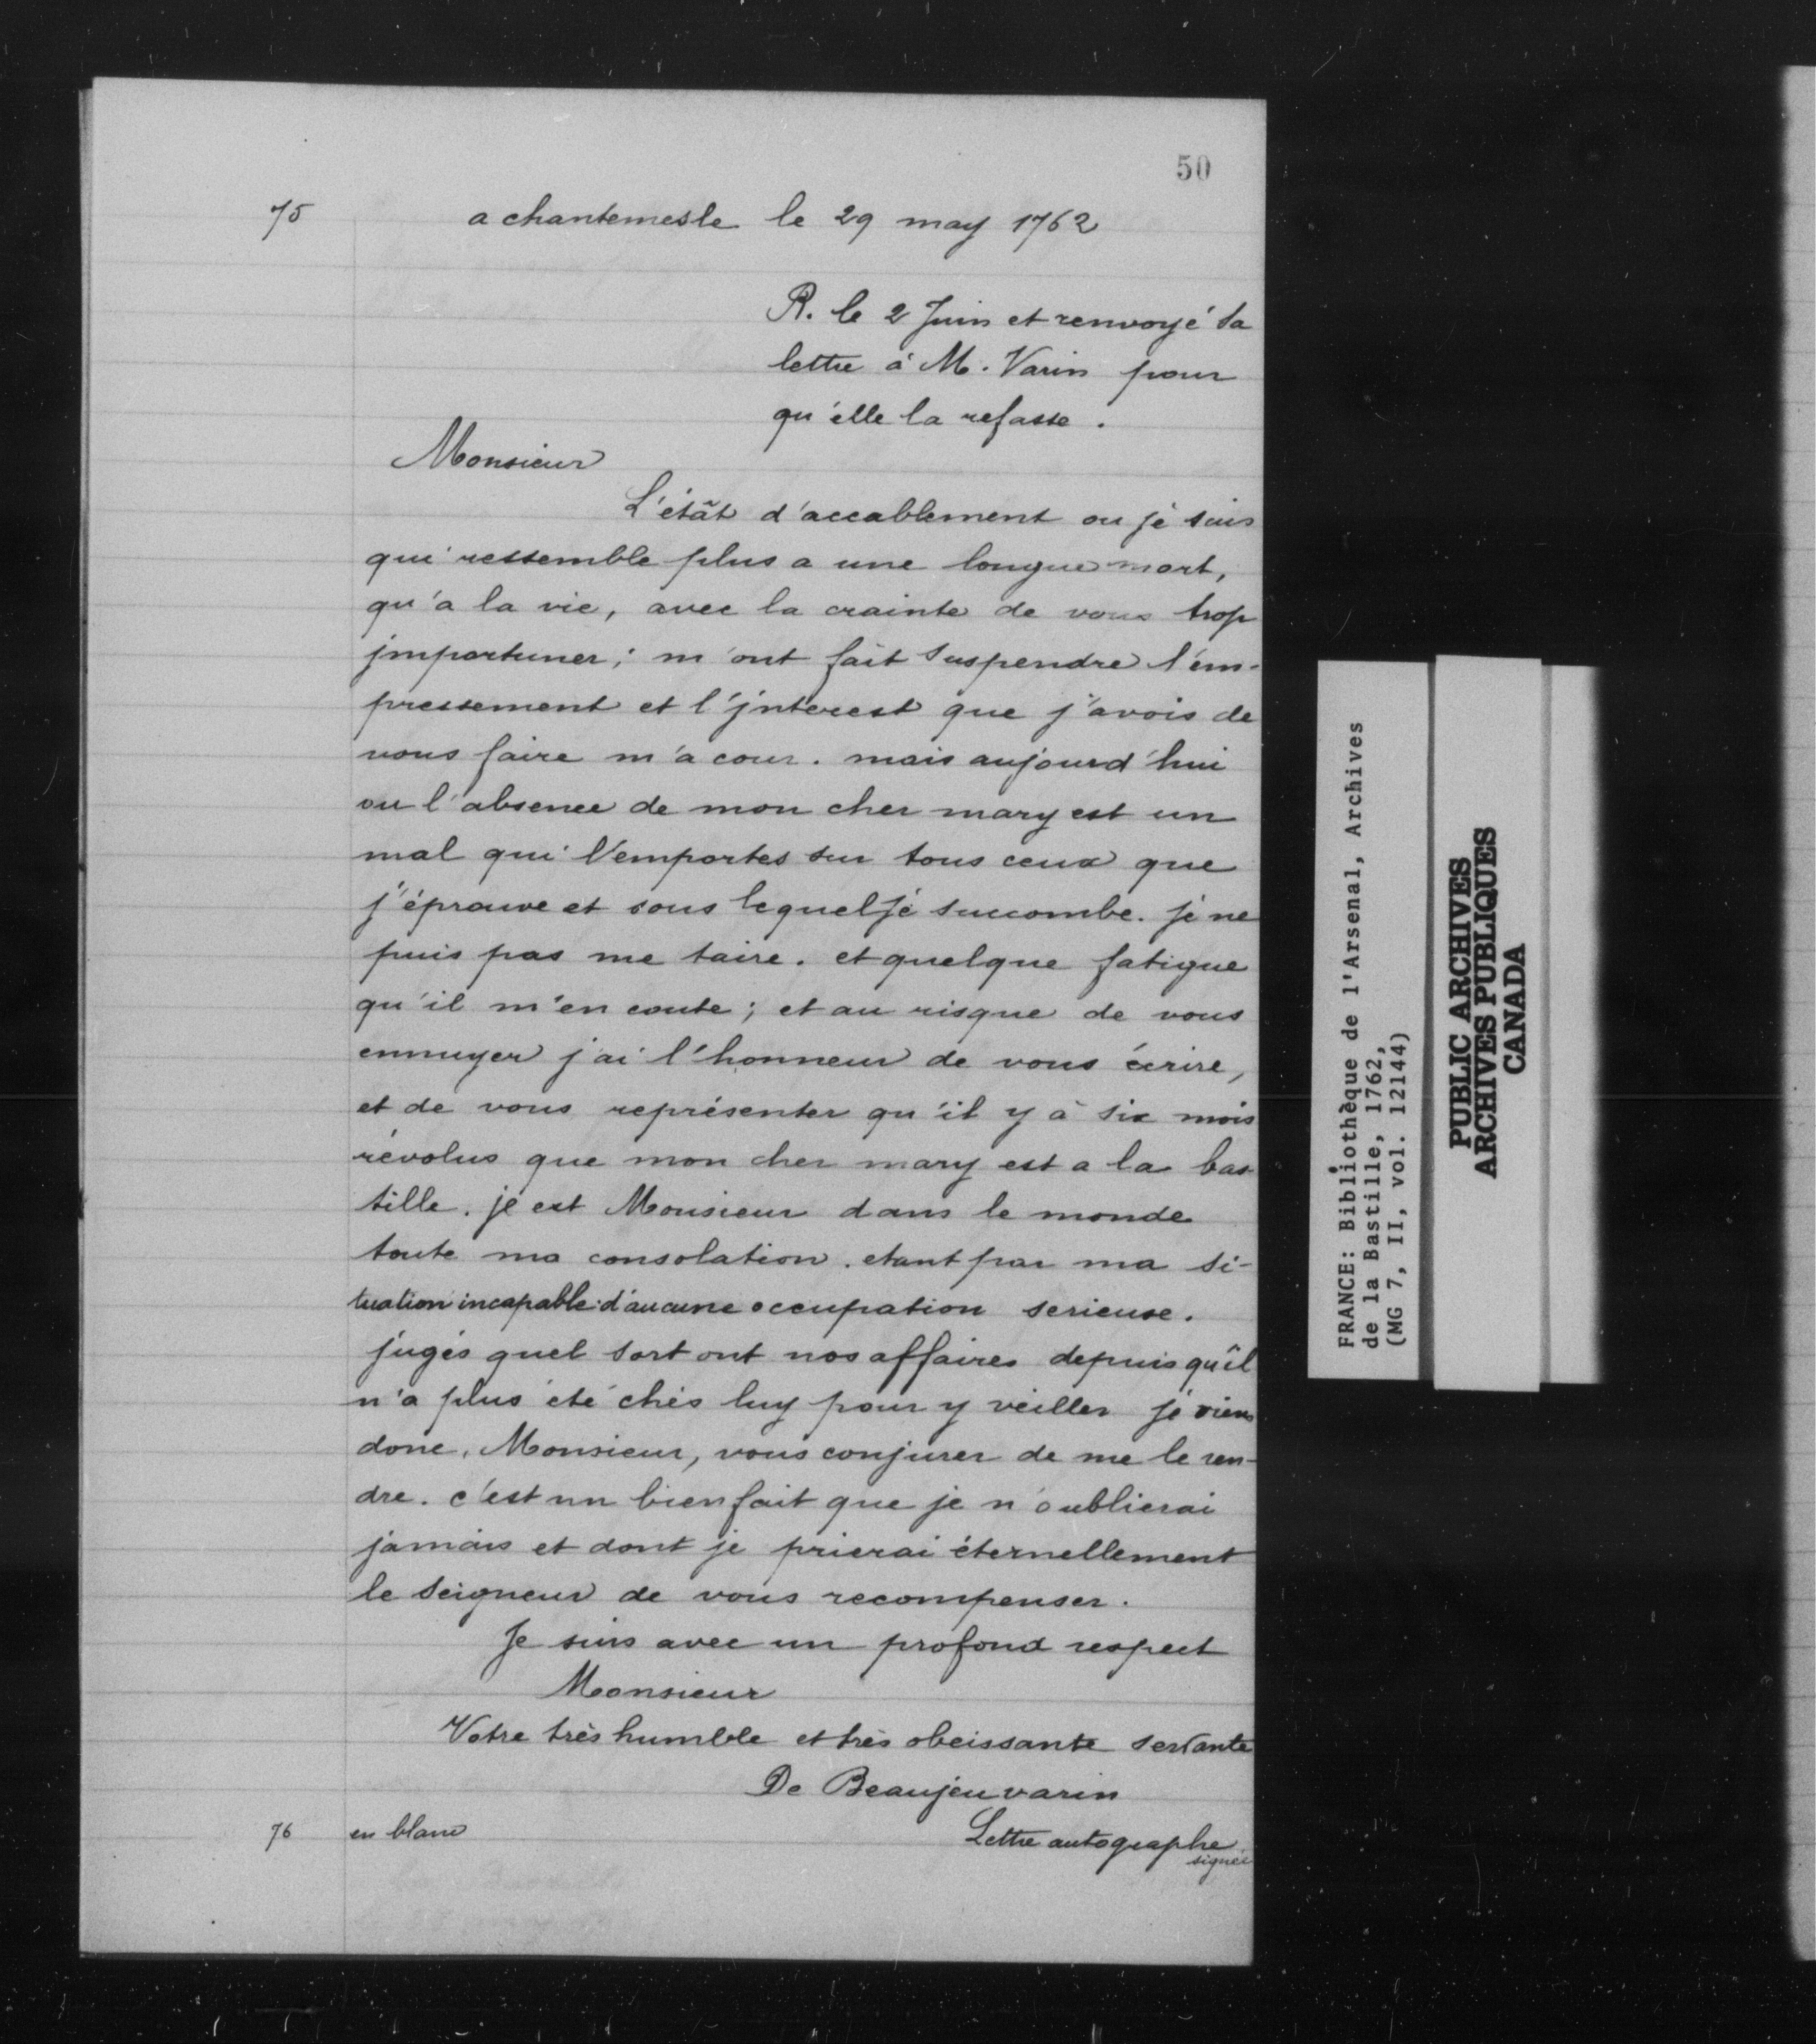 50
75 a chantemesle le 29 may 1762
R. le 2 Juin et renvoyé sa
lettre à M. Varin pour
qu'elle la refasse.
Monsieur
L'étât d'accablement ou jé suis
qui ressemble plus a une longue mort,
qu'a la vie, avec la crainte de vous trop
jmportuner; m'ont fait suspendre l'em-
pressement et l'jnterest que j'avois de
vous faire m'a cour. mais aujourd'hui
ou l'absence de mon cher mary est un
mal qui l'emportes sur tous ceux que
j'éprouve et sous lequel jé succombe. jé ne
puis pas me taire. et quelque fatigue
qu'il m'en coute; et au risque de vous
ennuyer j'ai l'honneur de vous écrire,
et de vous représenter qu'il y à six mois
révolus que mon cher mary est a la bas-
tille. jl est Monsieur dans le monde
toute ma consolation. etant par ma si-
tuation incapable d'aucune occupation serieuse.
jugés quel sort ont nos affaires depuis qu'il
n'a plus été chés luy pour y veiller jé viens
donc, Monsieur, vous conjurer de me le ren-
dre. c'est un bienfait que je n'oublierai
jamais et dont je prierai éternellement
le seigneur de vous recompenser.
Je suis avec un profond respect
Monsieur
Votre très humble et très obeissante servante
De Beaujeu varin
76 en blanc Lettre autographe
signée
FRANCE: Bibliothèque de l'Arsenal, Archives
de la Bastille, 1762,
(MG 7, II, vol. 12144)
PUBLIC ARCHIVES
ARCHIVES PUBLIQUES
CANADA